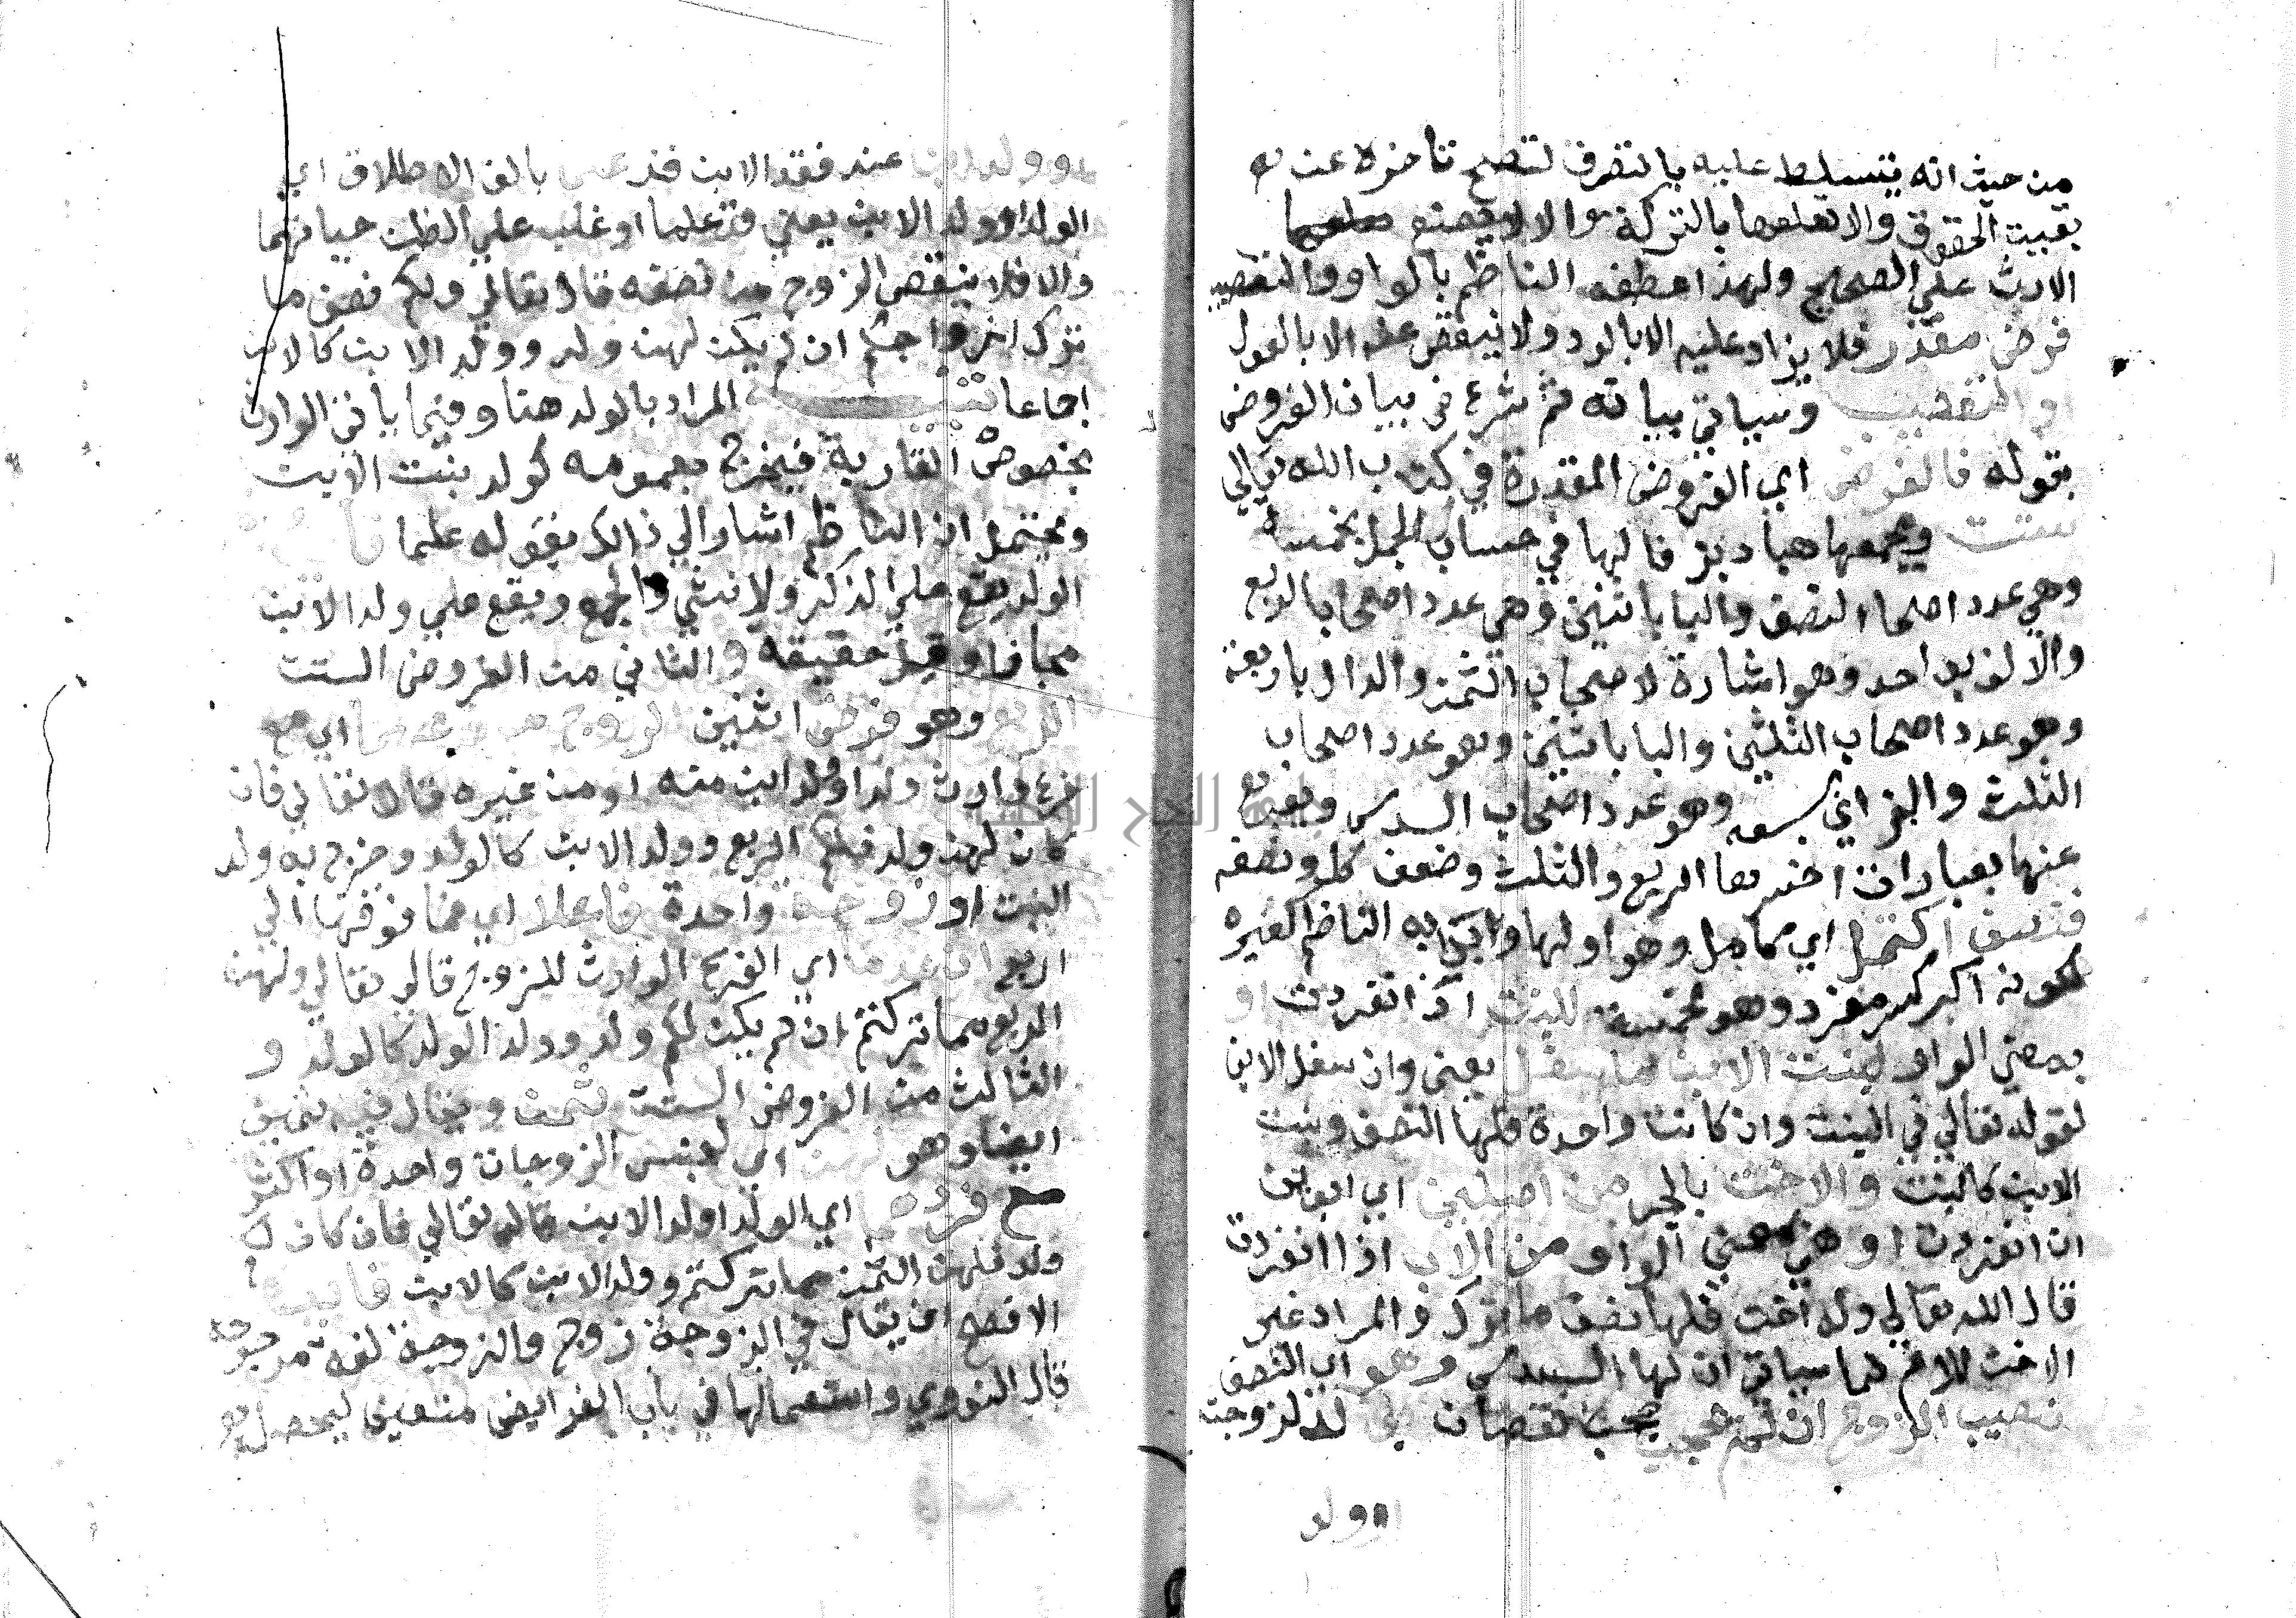 من حيث انه يتسلط عليه بالتصرف لتضح تاخره عن
بقيت الحقوق والا تعلقها بالتركة والا لا يمنع
الارث علي الصحيح ولهذا عطفه الناظم بالواو والتعصيب
فرض مقدر فلا يزاد عليه الا بالرد ولا ينقص عنه الا بالعول
او التعصيب وسياتي بيانه ثم شرع في بيان الفروض
بقوله فالفرض اي الفروض المقدرة في كتاب الله تعالي
ستت ويجمعها هبادبز فالها في حساب الجمل بخمسة
وهي عدد اصحاب النصف والبا باثنين وهي عدد اصحاب الربع
والالف بواحد وهو اشارة لاصحاب الثمن والدال باربعة
وهو عدد اصحاب الثلثين والبا باثنين وهو عدد اصحاب
الثلث والزاي بسبعه وهو عدد اصحاب السدس ويعبر
عنها بعبارات اخصرها الربع والثلث وضعف كل ونصفه
فنصف اكتمل اي كامل وهو اولها وابتدا به الناظم كغيره
لكونه اكبر كسر مفرد وهو لخمسة للبنت اذا انفردت او
بمعني الواو لبنت الابن يعني وان سفل الابن
لقوله تعالي في البنت وان كانت واحدة فلها النصف وبنت
الابن كالبنت والاخت بالجر من اصلين اي ابوين
ان انفردت او هي بمعني الواو من الاب اذا انفردت
قال الله تعالي وله اخت فلها نصف ما ترك والمراد غير
الاخت للام لما سياتي ان لها السدس وهو اي النصف
نصيب الزوج ان لم يحجب نقصان لذلزوجته
ولد
وولد ابن عند فقد الابن بالف الاطلاق اي
الولد او ولد الابن يعني علما او غلب علي الظن حياتهما
والا فلا ينقص الزوج من نصفه قال تعالي ولكم نصف ما
ترك ازواجكم ان لم يكن لهن ولد وولد الابن كالابن
اجماعا المراد بالولد هنا وفيما ياتي الوارث
بخصوص القرابة فيخرج بعمومه كولد بنت الابن
ويحتمل ان الناظم اشار الي ذالك بقوله علما
الولد يقع علي الذكر والانثي والجمع ويقع علي ولد الابن
مجازا وقيل حقيقه والثاني من الفروض الستت
الربع وهو فرض اثنين الزوج اي مع
فرع وارث ولد او ولد ابن منه او من غيره قال تعالي فان
كان لهن ولد فلكم الربع وولد الابن كالولد وخرج به ولد
البنت او زوجة واحدة فاعلا اي فما فوقها الي
اربع ان عدما اي الفرع الوارث للزوج قال تعالي ولهن
الربع مما تركتم ان لم يكن لكم ولد وولد الولد كالولد و
الثالث من الفروض الستت ثمن ويقال فيه ثمين
ايضا وهو لهن اي لجنس الزوجات واحدة او اكثر
مع اي الولد او ولد الابن قال تعالي فان كان
ولد فلهن الثمن مما تركتم وولد الابن كالابن
الافصح ان يقال في الزوجة زوج والزوجة لغة مرجوحة
قال النووي واستعمالها في باب الفرايض متعين ليحصل